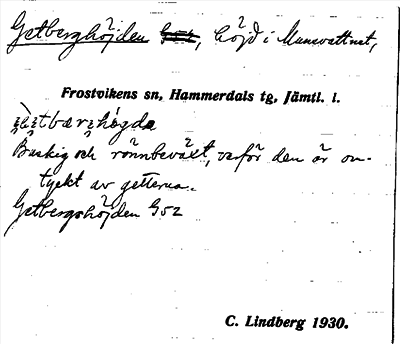 Getberghöjden G52, höjd i Mansvattnet,
Frostvikens sn, Hammerdals tg, Jämtl. l.
Buskig och rönnbeväxt, varför den är om-
tyckt av getterna.
Getbergshöjden G52
C. Lindberg 1930.